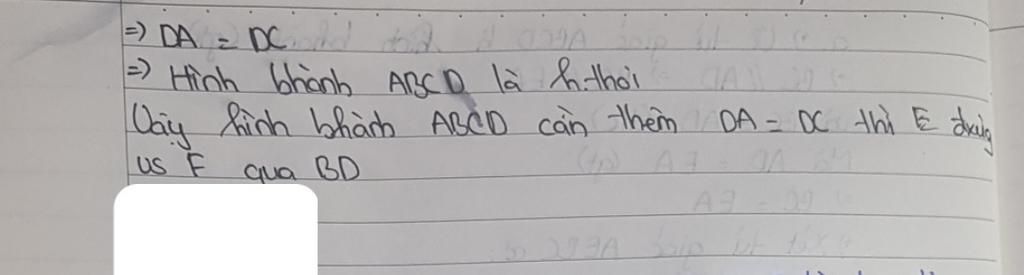 => DA = DC
=> Hình bhành ABCD là h.thoi
Vậy hình bhành ABCD cần thêm DA = DC thì E đxứng
vs F qua BD